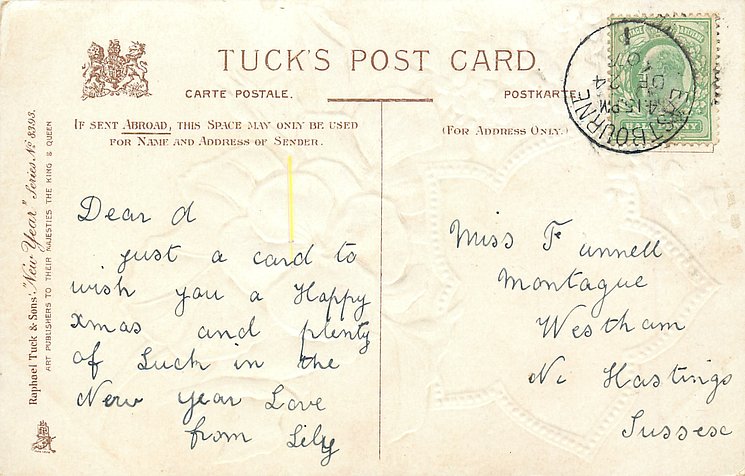 TUCK'S POST CARD.
CARTE POSTALE.
POSTKARTE
IF SENT ABROAD, THIS SPACE MAY ONLY BE USED
FOR NAME AND ADDRESS OF SENDER.
(FOR ADDRESS ONLY.)
EASTBOURNE
4.15 PM
DE 24
Raphael Tuck & Sons' "New Year" Series No 8393.
ART PUBLISHERS TO THEIR MAJESTIES THE KING & QUEEN
Dear d
just a card to
wish you a Happy
xmas and plenty
of Luck in the
New year Love
from Lily
Miss Funnell
Montague
Westham
Nr Hastings
Sussex